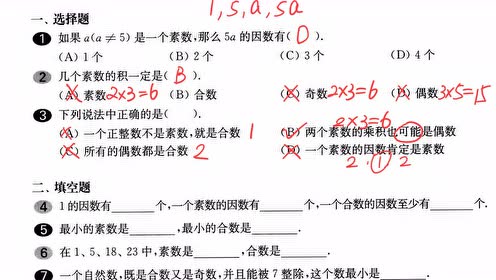 1,5,a,5a
一、选择题
1 如果 a(a≠5)是一个素数,那么 5a 的因数有( D ).
(A) 1 个 (B) 2 个 (C) 3 个 (D) 4 个
2 几个素数的积一定是( B ).
(A) 素数 2×3=6 (B) 合数 (C) 奇数 2×3=6 (D) 偶数 3×5=15
3 下列说法中正确的是( ). 2×3=6
(A) 一个正整数不是素数,就是合数 1 (B) 两个素数的乘积也可能是偶数
(C) 所有的偶数都是合数 2 (D) 一个素数的因数肯定是素数
2 . 1 2
二、填空题
4 1 的因数有 个,一个素数的因数有 个,一个合数的因数至少有 个.
5 最小的素数是 ,最小的合数是 .
6 在 1、5、18、23 中,素数是 ,合数是 .
7 一个自然数,既是合数又是奇数,并且能被 7 整除,这个数最小是